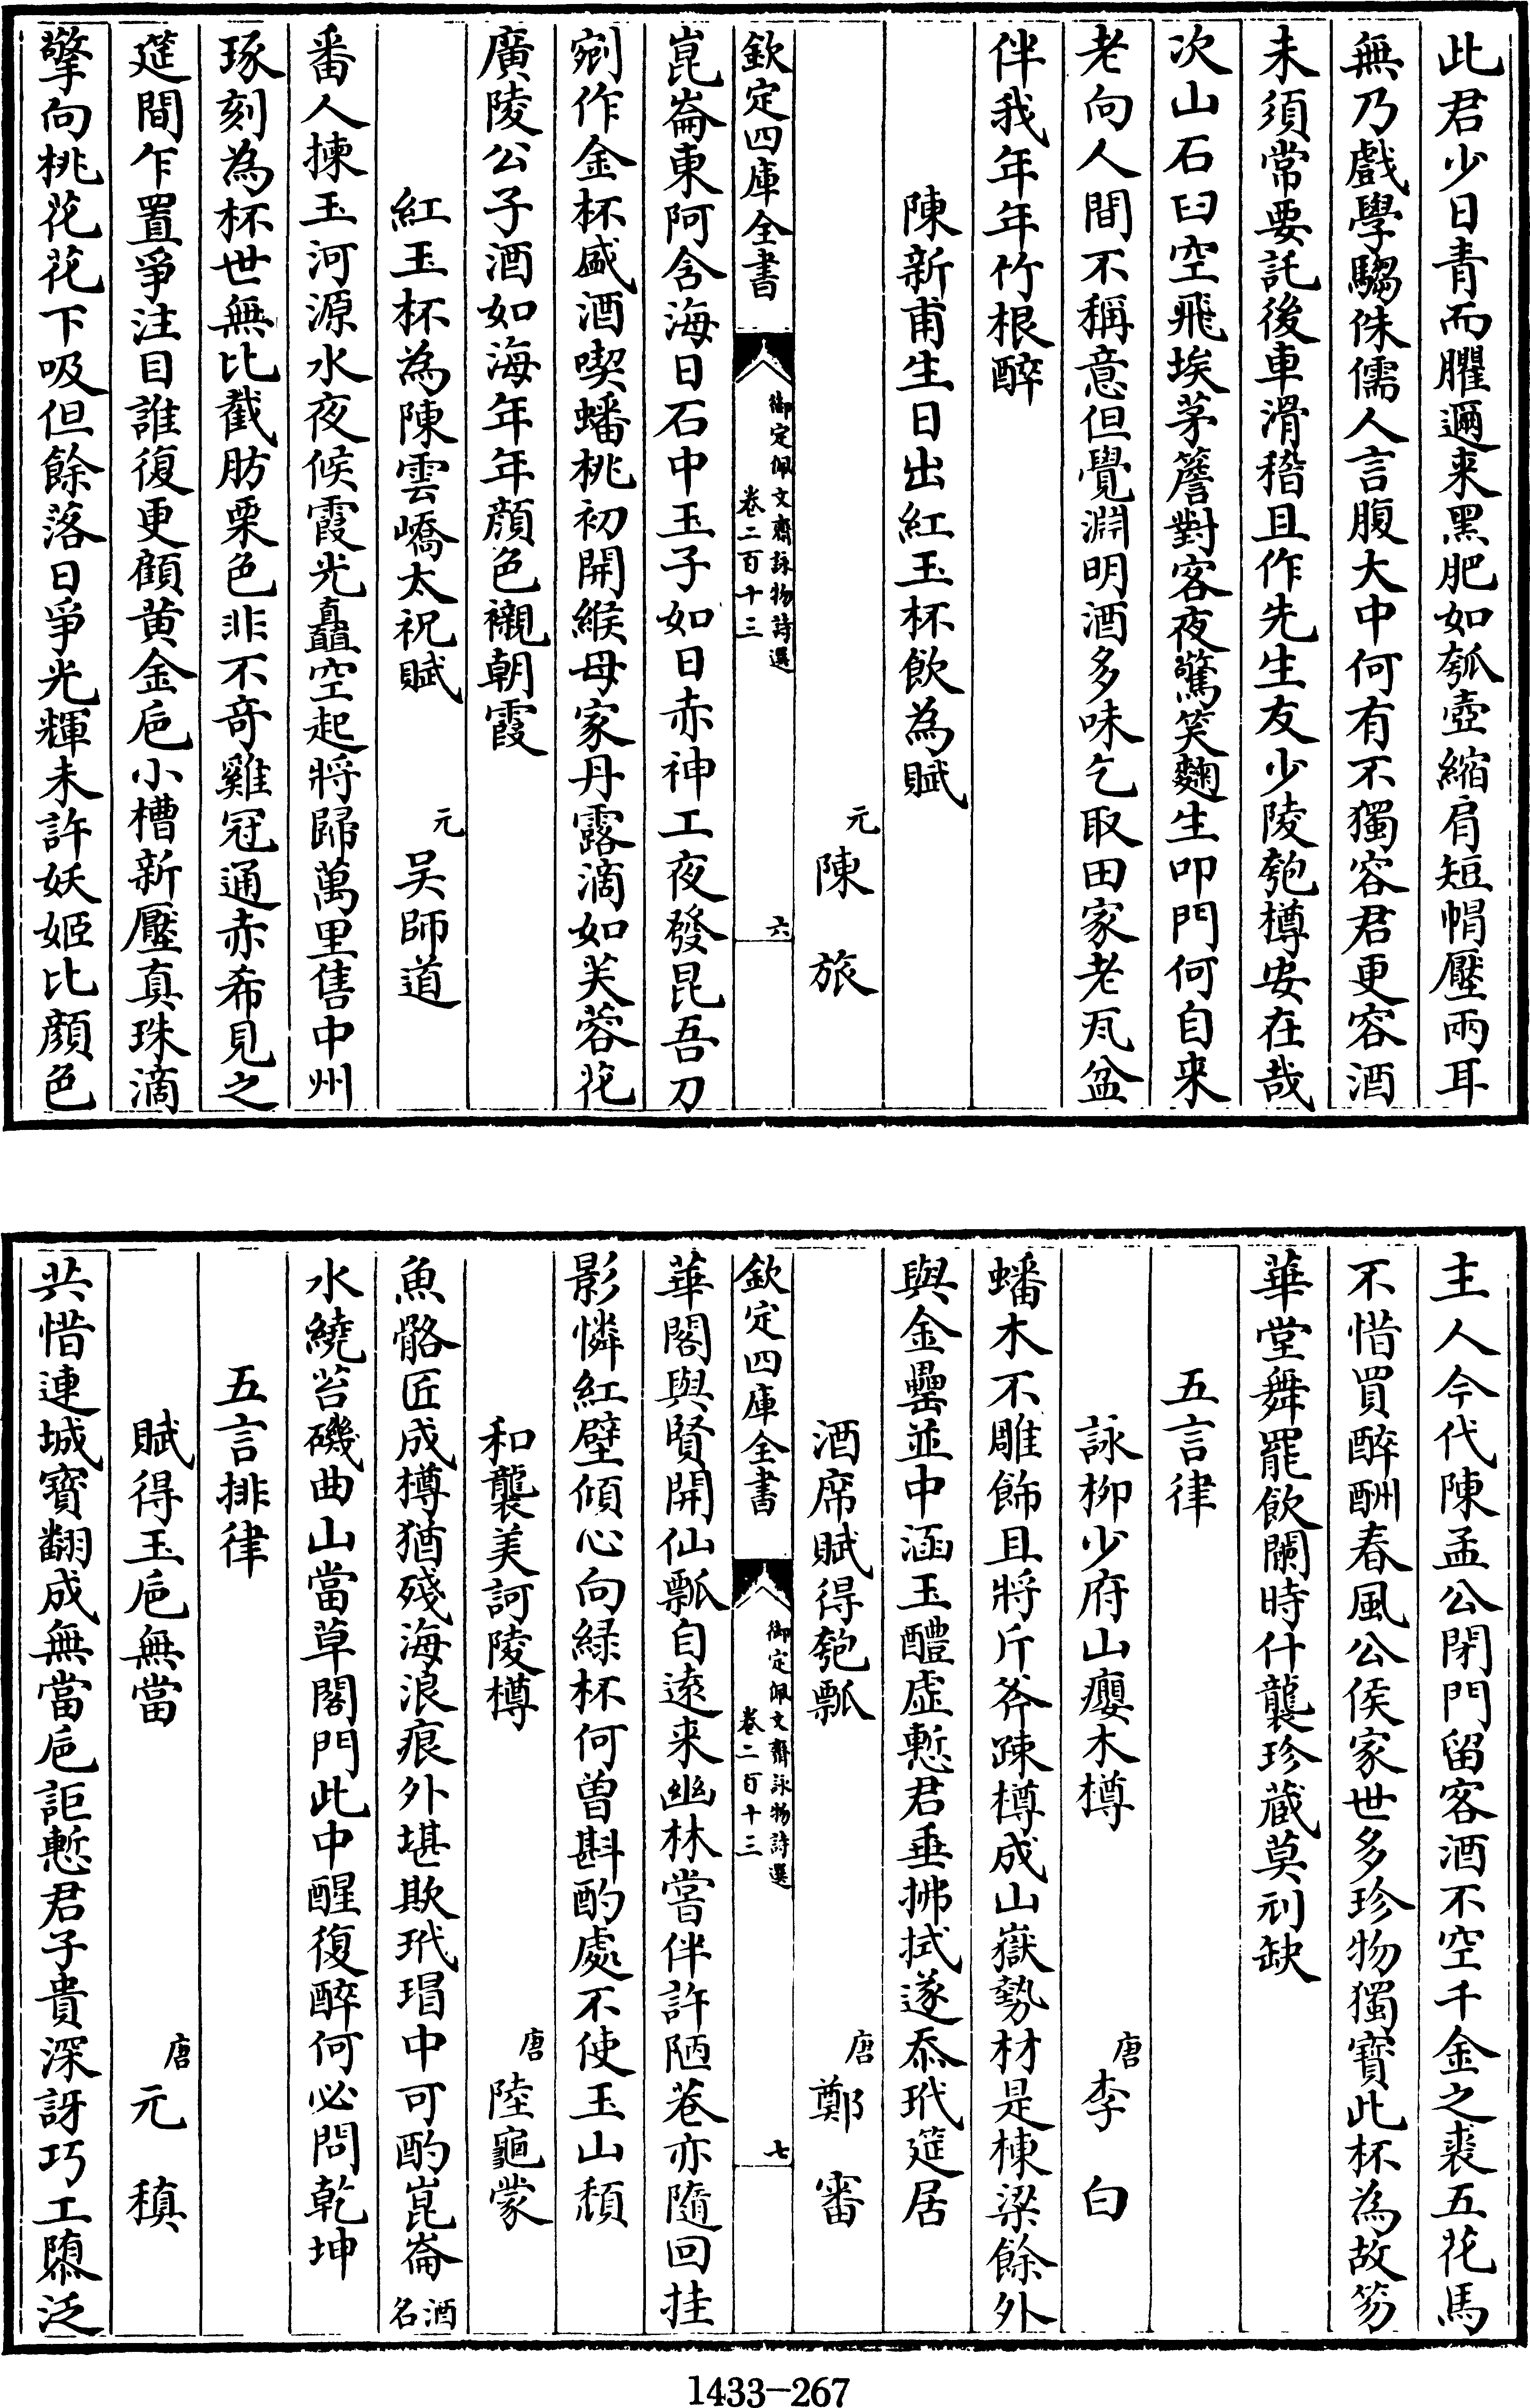 此君少日青而臞邇来黑肥如瓠壺縮肩短帽壓兩耳
無乃戲學騶侏儒人言腹大中何有不獨容君更容酒
未須常要託後車滑稽且作先生友少陵匏樽安在哉
次山石臼空飛埃茅簷對客夜驚笑麴生叩門何自来
老向人間不稱意但覺淵明酒多味乞取田家老瓦盆
伴我年年竹根醉
陳新甫生日出紅玉杯飲為賦
元陳旅
欽定四庫全書
御定佩文齋詠物詩選
卷二百十三
六
崑崙東阿含海日石中玉子如日赤神工夜發昆吾刀
剜作金杯盛酒喫蟠桃初開緱母家丹露滴如芙蓉花
廣陵公子酒如海年年顔色襯朝霞
紅玉杯為陳雲嶠太祝賦
元吴師道
番人揀玉河源水夜候霞光矗空起將歸萬里售中州
琢刻為杯世無比截肪栗色非不竒雞冠通赤希見之
筵間乍置爭注目誰復更顧黄金巵小槽新壓真珠滴
擎向桃花花下吸但餘落日爭光輝未許妖姬比顔色
主人今代陳孟公閉門留客酒不空千金之裘五花馬
不惜買醉酬春風公侯家世多珍物獨寶此杯為故笏
華堂舞罷飲闌時什襲珍藏莫刓缺
五言律
詠柳少府山癭木樽
唐李白
蟠木不雕飾且將斤斧疎樽成山嶽勢材是棟梁餘外
與金罍並中涵玉醴虛慙君垂拂拭遂忝玳筵居
酒席賦得匏瓢
唐鄭審
欽定四庫全書
御定佩文齋詠物詩選
卷二百十三
七
華閣與賢開仙瓢自逺来幽林嘗伴許陋巷亦隨回挂
影憐紅壁傾心向緑杯何曾斟酌處不使玉山頽
和襲美訶陵樽
唐陸龜蒙
魚骼匠成樽猶殘海浪痕外堪欺玳瑁中可酌崑崙酒名
水繞苔磯曲山當草閣門此中醒復醉何必問乾坤
五言排律
賦得玉巵無當
唐元稹
共惜連城寳翻成無當巵詎慙君子貴深訝巧工隳泛
1433-267